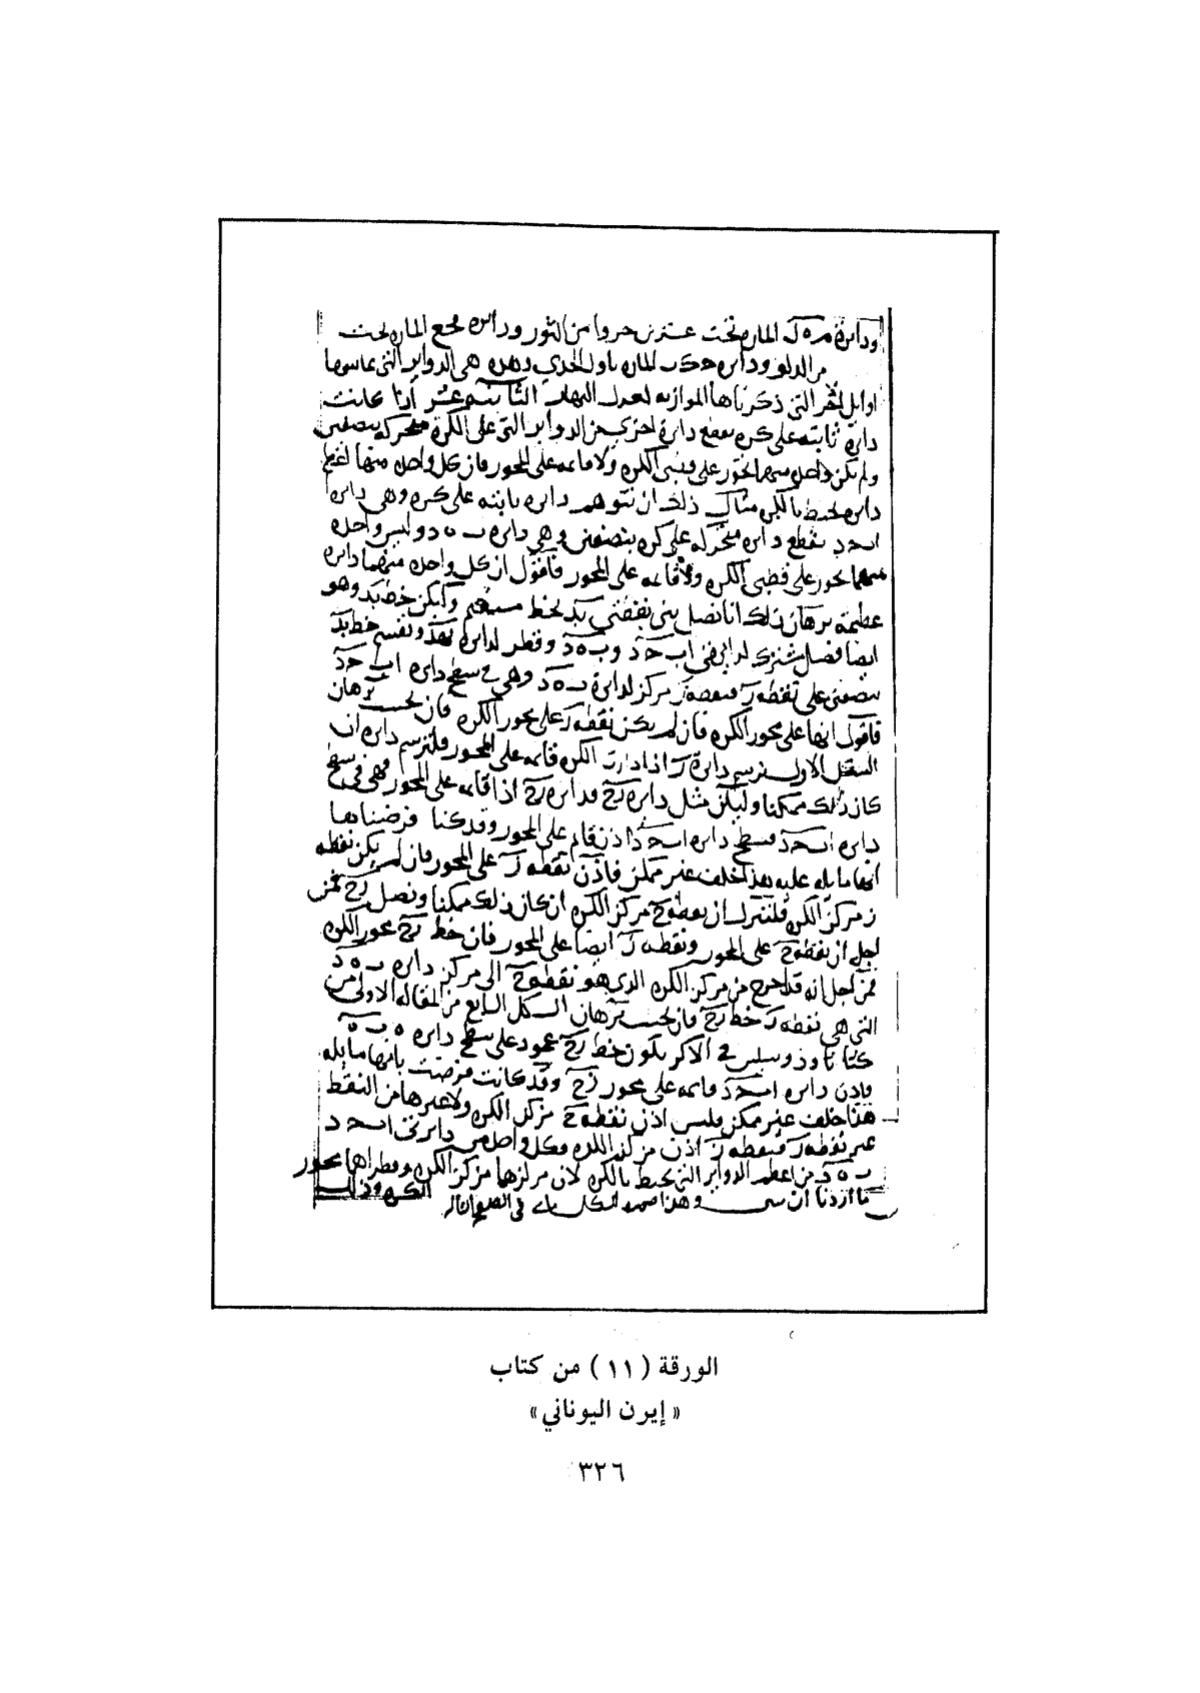 ودائرة م ه ك المارة تحت عشرين جزوا من الثور ودائرة المارة تحت
من الدلو ودائرة المارة باول الجدي وهذه هي الدواير التي تماسها
اوايل التي ذكرناها الموازيه لمعدل النهار الثانيه عشر اذا كانت
دايرة ثابته على كره تقطع دايرة اخرى من الدواير التي على الكرة متحركه بنصفين
ولم تكن واحدة منهما تجوز على قطبي الكره ولا قايمه على المحور فان كل واحده منهما اعظم
دايره تحيط بالكره مثال ذلك ان نتوهم دايره ثابته على كره وهي دايره
ا ب ح د تقطع دايره متحركه على كره بنصفين وهي دايره ب ه د وليس واحده
منهما تجوز على قطبي الكره ولا قايمه على المحور فاقول ان كل واحده منهما دايره
عظيمة برهان ذلك انا نصل بين نقطتي ب د بخط مستقيم وليكن خط ب د وهو
ايضا فصل مشترك لدايرتي ا ب ح د و ب ه د وقطر لدايرة ب ه د ونقسم خط ب د
بنصفين على نقطه ز فنقطه ز مركز لدايرة ب ه د وهي في سطح دايره ا ب ح د
فاقول انها على محور الكره فان لم يكن نقطه ز على محور الكره فان بحسب برهان
الشكل الاول نرسم دايرة ز اذا دارت الكره قايمه على المحور فلترسم دايره ان
كان ذلك ممكنا وليكن مثل دايره ز ح فدايره ز ح اذا قايمه على المحور وهي في سطح
دايره ا ب ح د فسطح دايره ا ب ح د اذن قايم على المحور وقد كنا فرضناها
انها مايله عليه هذا خلف غير ممكن فاذن نقطه ز على المحور فان لم يكن نقطه
ز مركز الكره فلننزل ان نقطه ح مركز الكره ان كان ذلك ممكنا ونصل ز ح فمن
اجل ان نقطه ح على المحور ونقطه ز ايضا على المحور فان خط ز ح محور الكره
فمن اجل انه قد اخرج من مركز الكره الذي هو نقطه ح الى مركز دايره ب ه د
التي هي نقطه ز خط ز ح فان بحسب برهان الشكل السابع من المقاله الاولى من
كتاب ثاوذوسيس في الاكر يكون خط ز ح عمود على سطح دايره ب ه د
فاذن دايره ا ب ح د قايمه على محور ز ح وقد كانت فرضت بانها مايله
هذا خلف غير ممكن فليس اذن نقطه ح مركز الكره ولا غيرها من النقط
غير نقطه ز فنقطه ز اذن مركز الكره وكل واحد من دايرتي ا ب ح د
ب ه د من اعظم الدواير التي تحيط بالكره لان مركزها مركز الكره وقطراها محور
الكره وذلك
ما اردنا ان نبين وهذا صوره الشكل في الصفح
الورقة ( ١١ ) من كتاب
« إيرن اليوناني »
٣٢٦